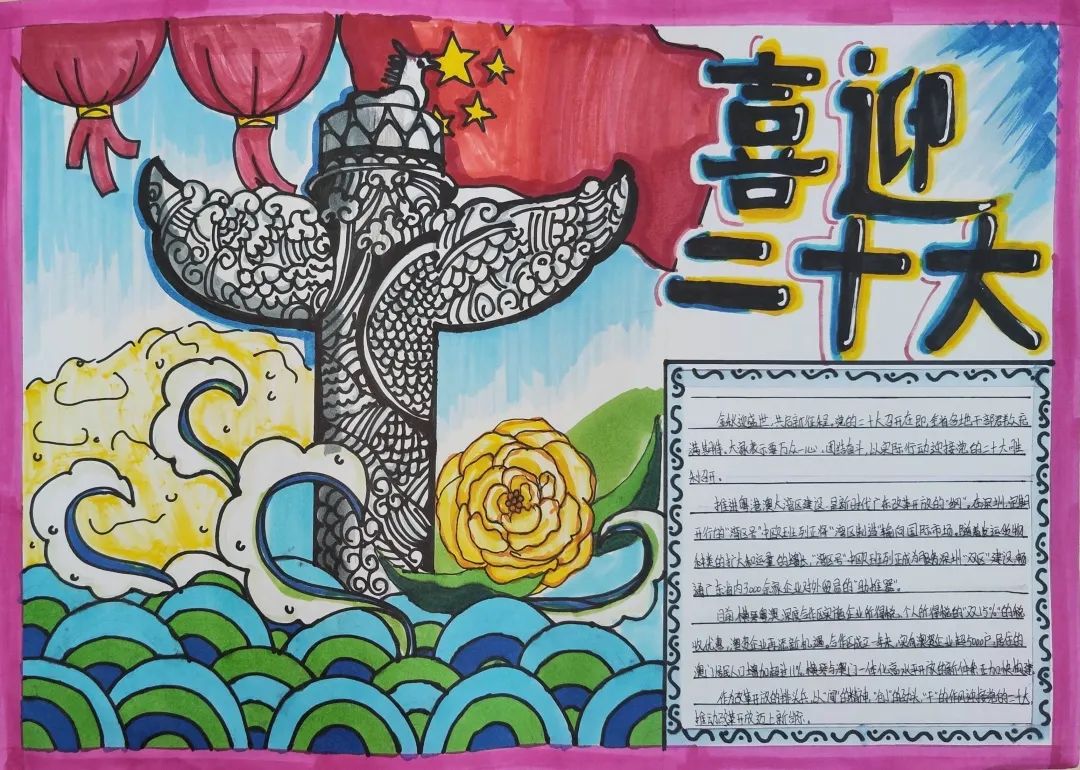 喜迎
二十大
金秋迎盛世,共启新征程。党的二十大召开在即,全省各地干部群众充
满期待。大家表示要万众一心、团结奋斗,以实际行动迎接党的二十大胜
利召开。
推进粤港澳大湾区建设,是新时代广东改革开放的“纲”。在深圳,
开行的“湾区号”中欧班列正将“湾区制造”输向国际市场。随着发运货物
种类的扩大和运量的增长,“湾区号”中欧班列正成为服务深圳“双区”建设、畅
通广东省内3000余家企业对外贸易的“助推器”。
目前,横琴粤澳深度合作区实施企业所得税、个人所得税的“双15%”的税
收优惠,澳资企业再添新机遇。合作区成立一年来,实有澳资企业超5000户,居住的
澳门居民人口增加超进1%,横琴与澳门一体化高水平开放的新体系正加快构建
作为改革开放的排头兵,以“闯”的精神、“创”的劲头、“干”的作风迎接党的二十大
推动改革开放迈上新台阶。